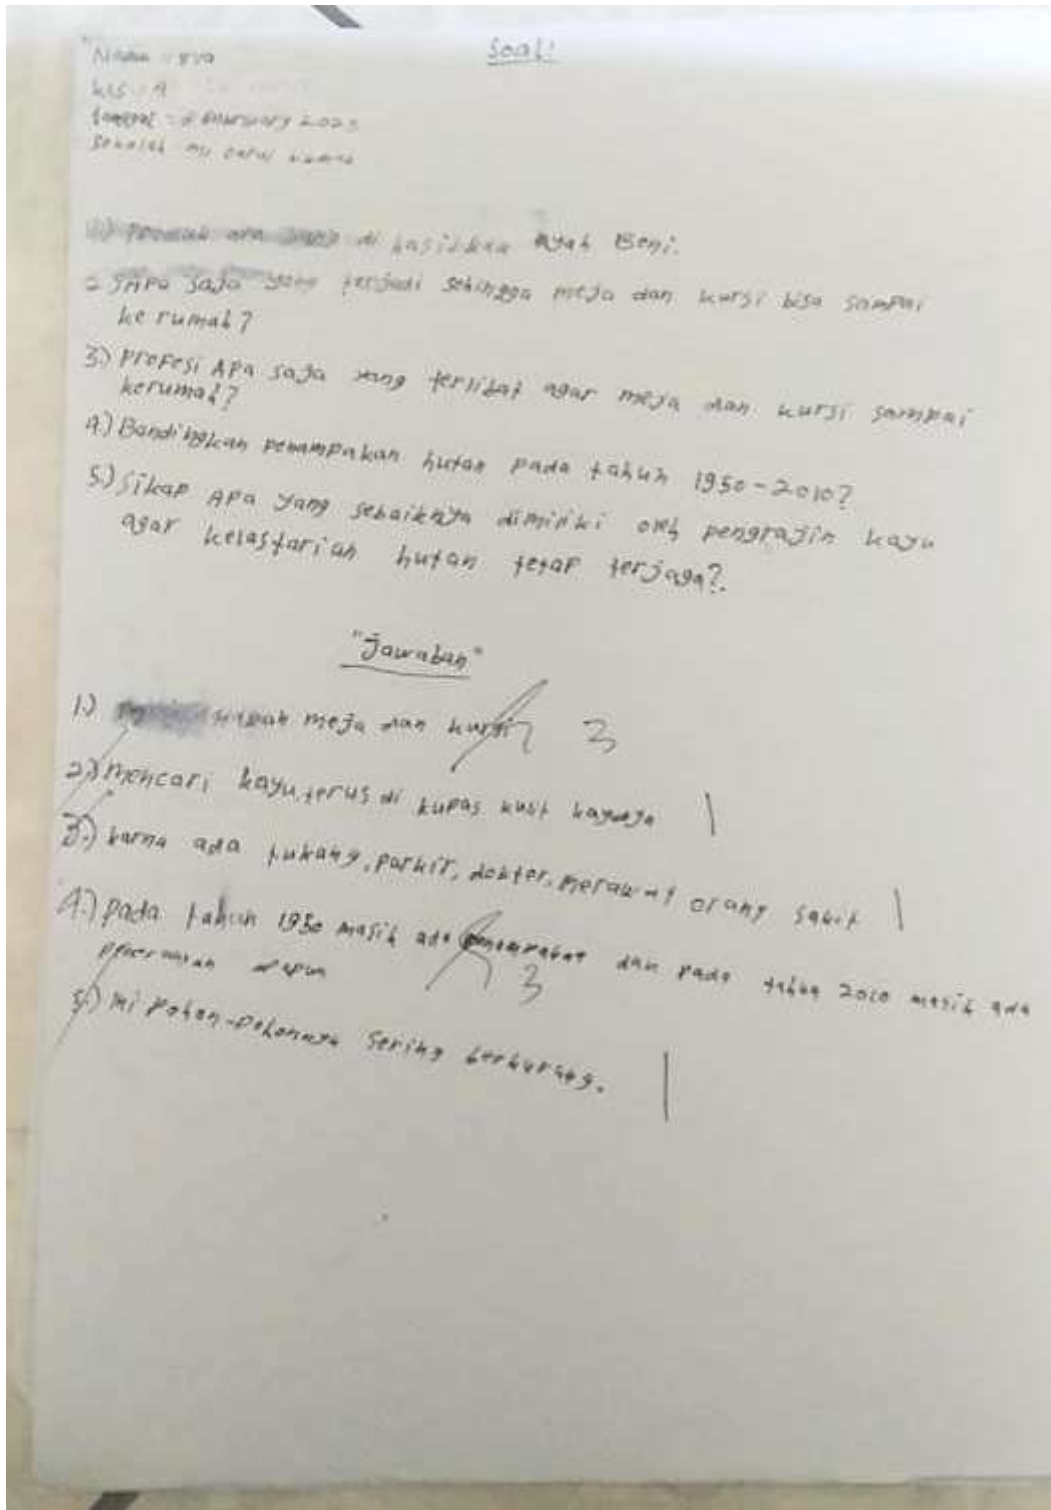 Soal:
Nama :
kls : 4
tanggal : February 2023
Sekolah
1) Produk apa yang di hasilkan Ayah Beni.
2 Apa saja yang terjadi sehingga meja dan kursi bisa sampai
ke rumah?
3.) Profesi Apa saja yang terlibat agar meja dan kursi sampai
kerumah?
4.) Bandingkan penampakan hutan pada tahun 1950-2010?
5.) Sikap Apa yang sebaiknya dimiliki oleh pengrajin kayu
agar kelastarian hutan tetap terjaga?.
"Jawaban"
1.) meja dan kursi 3
2.) mencari kayu, terus di kupas kulit kayunya 1
3.) karna ada tukang, parkir, dokter, merawat orang sakit 1
4.) pada tahun 1950 masih ada dan pada tahun 2010 masih ada
3
5.) ini pohon-pohonnya sering berkurang. 1